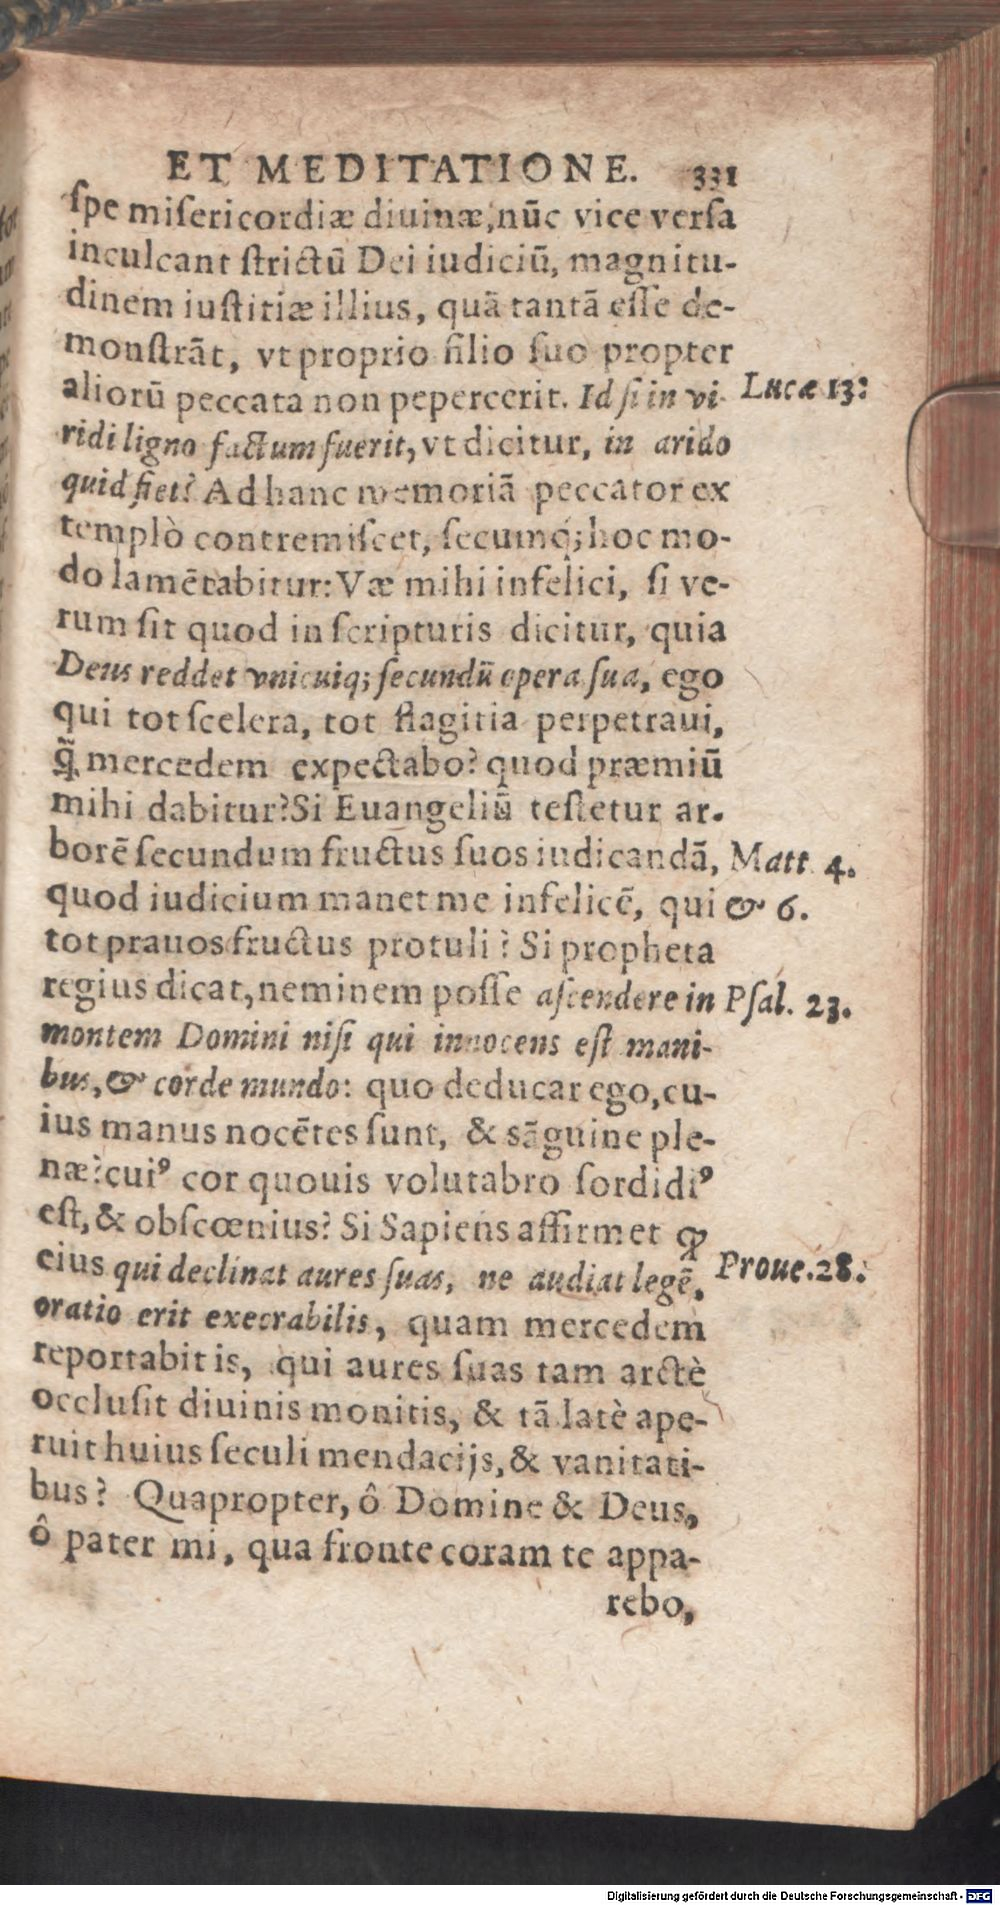 ET MEDITATIONE. 331
ſpe miſericordiæ diuinæ, nūc vice verſa
inculcant ſtrictū Dei iudiciū, magnitu-
dinem iuſtitiæ illius, quā tantā eſſe de-
monſtrāt, vt proprio filio ſuo propter
aliorū peccata non pepercerit. Id ſi in vi- Lucæ 13:
ridi ligno factum fuerit, vt dicitur, in arido
quid fiet? Ad hanc memoriā peccator ex
templò contremiſcet, ſecumq́; hoc mo-
do lamētabitur: Væ mihi infelici, ſi ve-
rum ſit quod in ſcripturis dicitur, quia
Deus reddet vnicuiq; ſecundū opera ſua, ego
qui tot ſcelera, tot flagitia perpetraui,
q̃ mercedem expectabo? quod præmiū
mihi dabitur? Si Euangeliū teſtetur ar-
borē ſecundum fructus ſuos iudicandā, Matt 4.
quod iudicium manet me infelicē, qui & 6.
tot prauos fructus protuli? Si propheta
regius dicat, neminem poſſe aſcendere in Pſal. 23.
montem Domini niſi qui innocens eſt mani-
bus, & corde mundo: quo deducar ego, cu-
ius manus nocētes ſunt, & sāguine ple-
næ? cuiꝰ cor quouis volutabro ſordidiꝰ
eſt, & obſcœnius? Si Sapiens affirmet ꝙ
eius qui declinat aures ſuas, ne audiat legē, Proue. 28.
oratio erit execrabilis, quam mercedem
reportabit is, qui aures ſuas tam arctè
occluſit diuinis monitis, & tā latè ape-
ruit huius ſeculi mendacijs, & vanitati-
bus? Quapropter, ô Domine & Deus,
ô pater mi, qua fronte coram te appa-
rebo,
Digitalisierung gefördert durch die Deutsche Forschungsgemeinschaft - DFG